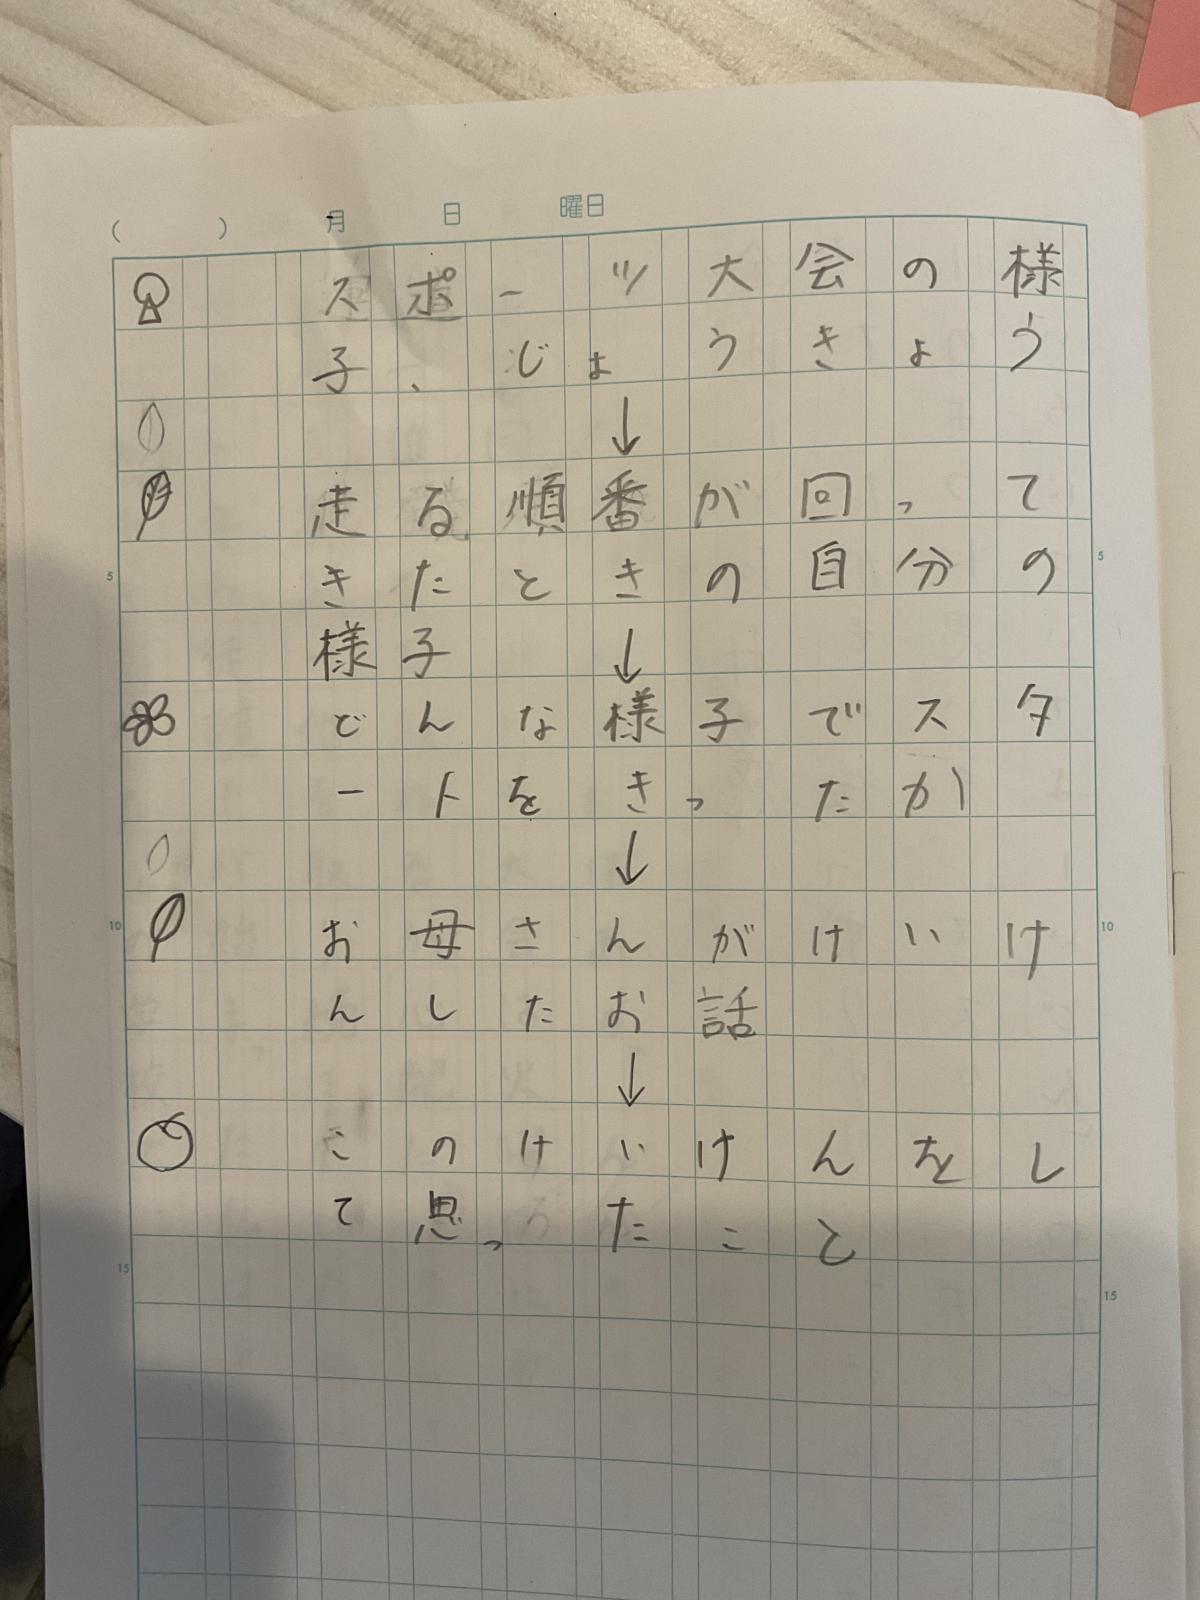 ( ) 月 日 曜日
スポーツ大会の様
子、じょうきょう
↓
走る順番が回って
きたときの自分の
様子 ↓
どんな様子でスタ
ートをきったか
↓
お母さんがけいけ
んしたお話
↓
このけいけんをし
て思ったこと
5
10
15
5
10
15